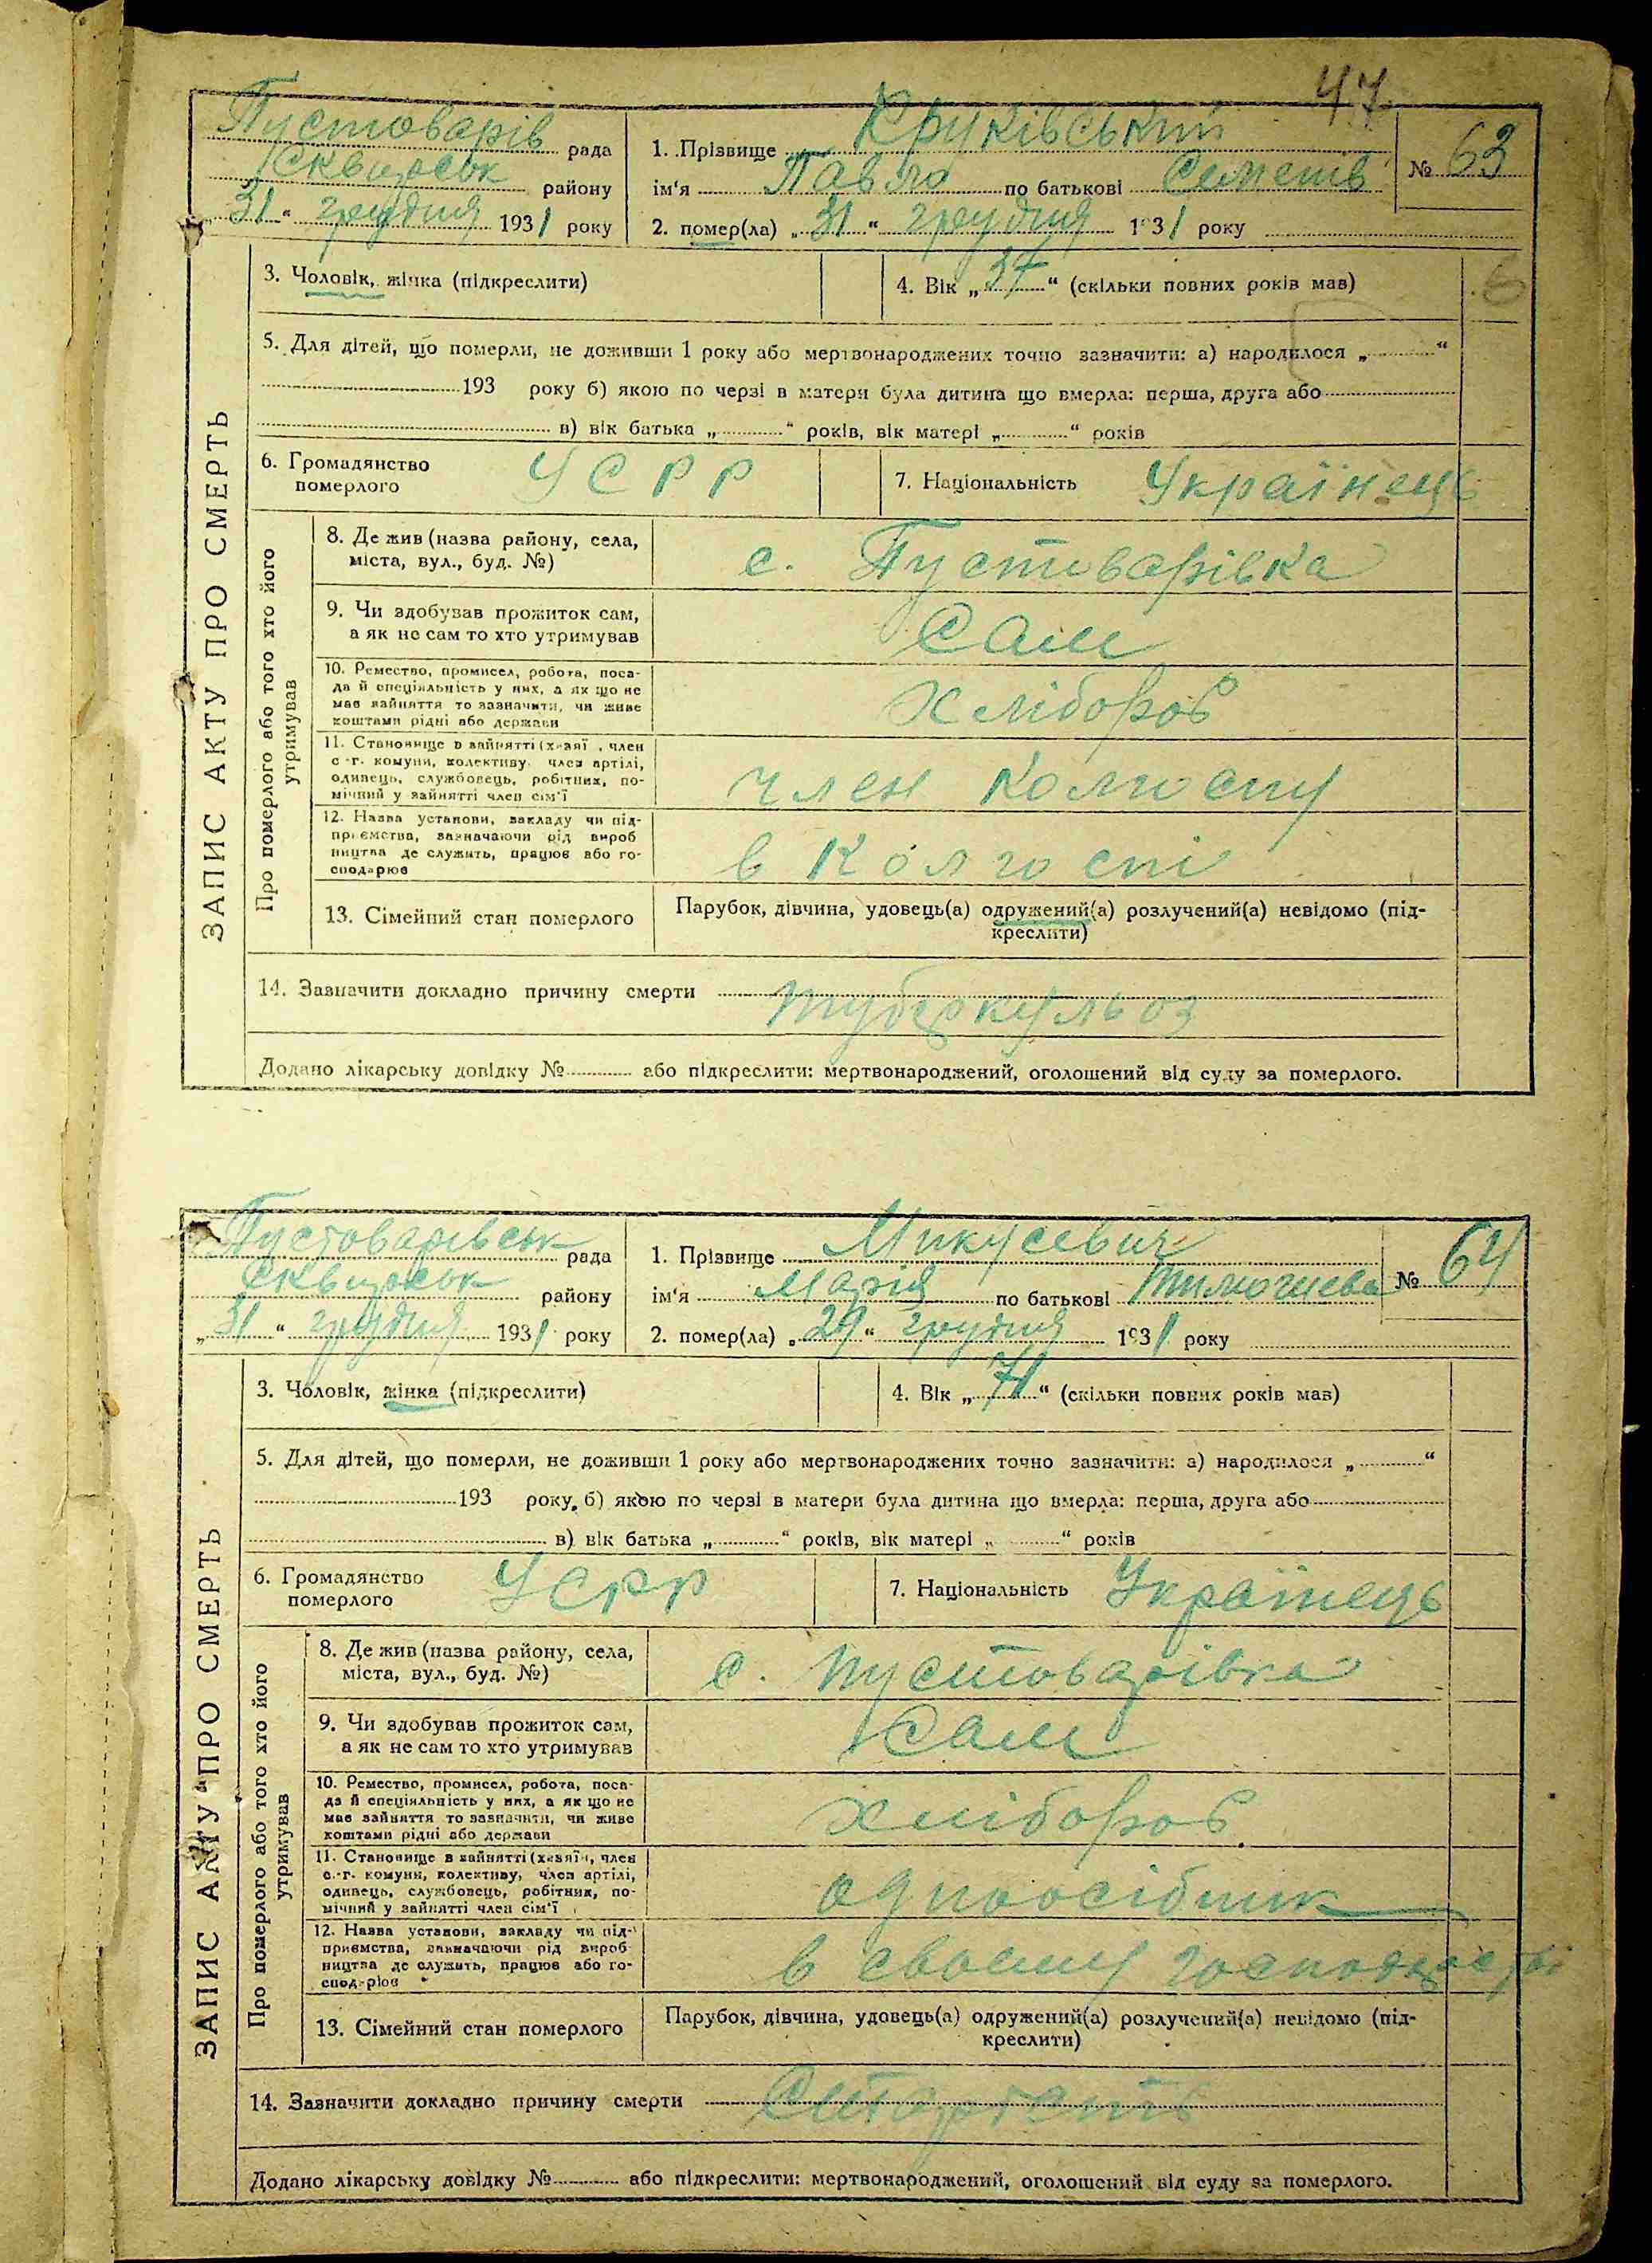 47
Пустоварів рада
Сквирськ району
„31“ грудня 1931 року
1. Прізвище Круківський
ім'я Павло по батькові Семенів
№ 63
2. помер(ла) „31“ грудня 1931 року
ЗАПИС АКТУ ПРО СМЕРТЬ
3. Чоловік, жінка (підкреслити)
4. Вік „37“ (скільки повних років мав)
5. Для дітей, що померли, не доживши 1 року або мертвонароджених точно зазначити: а) народилося „ “
193 року б) якою по черзі в матери була дитина що вмерла: перша, друга або
в) вік батька „ “ років, вік матері „ “ років
6. Громадянство
померлого
УСРР
7. Національність Українець
Про померлого або того хто його
утримував
8. Де жив (назва району, села,
міста, вул., буд. №)
с. Пустоварівка
9. Чи здобував прожиток сам,
а як не сам то хто утримував
Сам
10. Ремество, промисел, робота, поса-
да й спеціяльність у них, а як що не
має зайняття то зазначити, чи живе
коштами рідні або держави
Хлібороб
11. Становище в зайнятті (хазяї , член
с.-г. комуни, колективу, член артілі,
одинець, службовець, робітник, по-
мічний у зайнятті член сім'ї
член колгоспу
12. Назва установи, закладу чи під-
приємства, зазначаючи рід вироб
ництва де служить, працює або го-
сподарює
в колгоспі
13. Сімейний стан померлого
Парубок, дівчина, удовець(а) одружений(а) розлучений(а) невідомо (під-
креслити)
14. Зазначити докладно причину смерти туберкульоз
Додано лікарську довідку № або підкреслити: мертвонароджений, оголошений від суду за померлого.
Пустоварівськ рада
Сквирськ району
„31“ грудня 1931 року
1. Прізвище Микусевич
ім'я Марія по батькові Тимошева
№ 64
2. помер(ла) „29“ грудня 1931 року
ЗАПИС АКТУ ПРО СМЕРТЬ
3. Чоловік, жінка (підкреслити)
4. Вік „71“ (скільки повних років мав)
5. Для дітей, що померли, не доживши 1 року або мертвонароджених точно зазначити: а) народилося „ “
193 року, б) якою по черзі в матери була дитина що вмерла: перша, друга або
в) вік батька „ “ років, вік матері „ “ років
6. Громадянство
померлого
УСРР
7. Національність Українець
Про померлого або того хто його
утримував
8. Де жив (назва району, села,
міста, вул., буд. №)
с. Пустоварівка
9. Чи здобував прожиток сам,
а як не сам то хто утримував
Сам
10. Ремество, промисел, робота, поса-
да й спеціяльність у них, а як що не
має зайняття то зазначити, чи живе
коштами рідні або держави
хлібороб
11. Становище в зайнятті (хазяї , член
с.-г. комуни, колективу, член артілі,
одинець, службовець, робітник, по-
мічний у зайнятті член сім'ї
одноосібник
12. Назва установи, закладу чи під-
приємства, зазначаючи рід вироб-
ництва де служить, працює або го-
сподарює
в своєму господарстві
13. Сімейний стан померлого
Парубок, дівчина, удовець(а) одружений(а) розлучений(а) невідомо (під-
креслити)
14. Зазначити докладно причину смерти Старість
Додано лікарську довідку № або підкреслити: мертвонароджений, оголошений від суду за померлого.